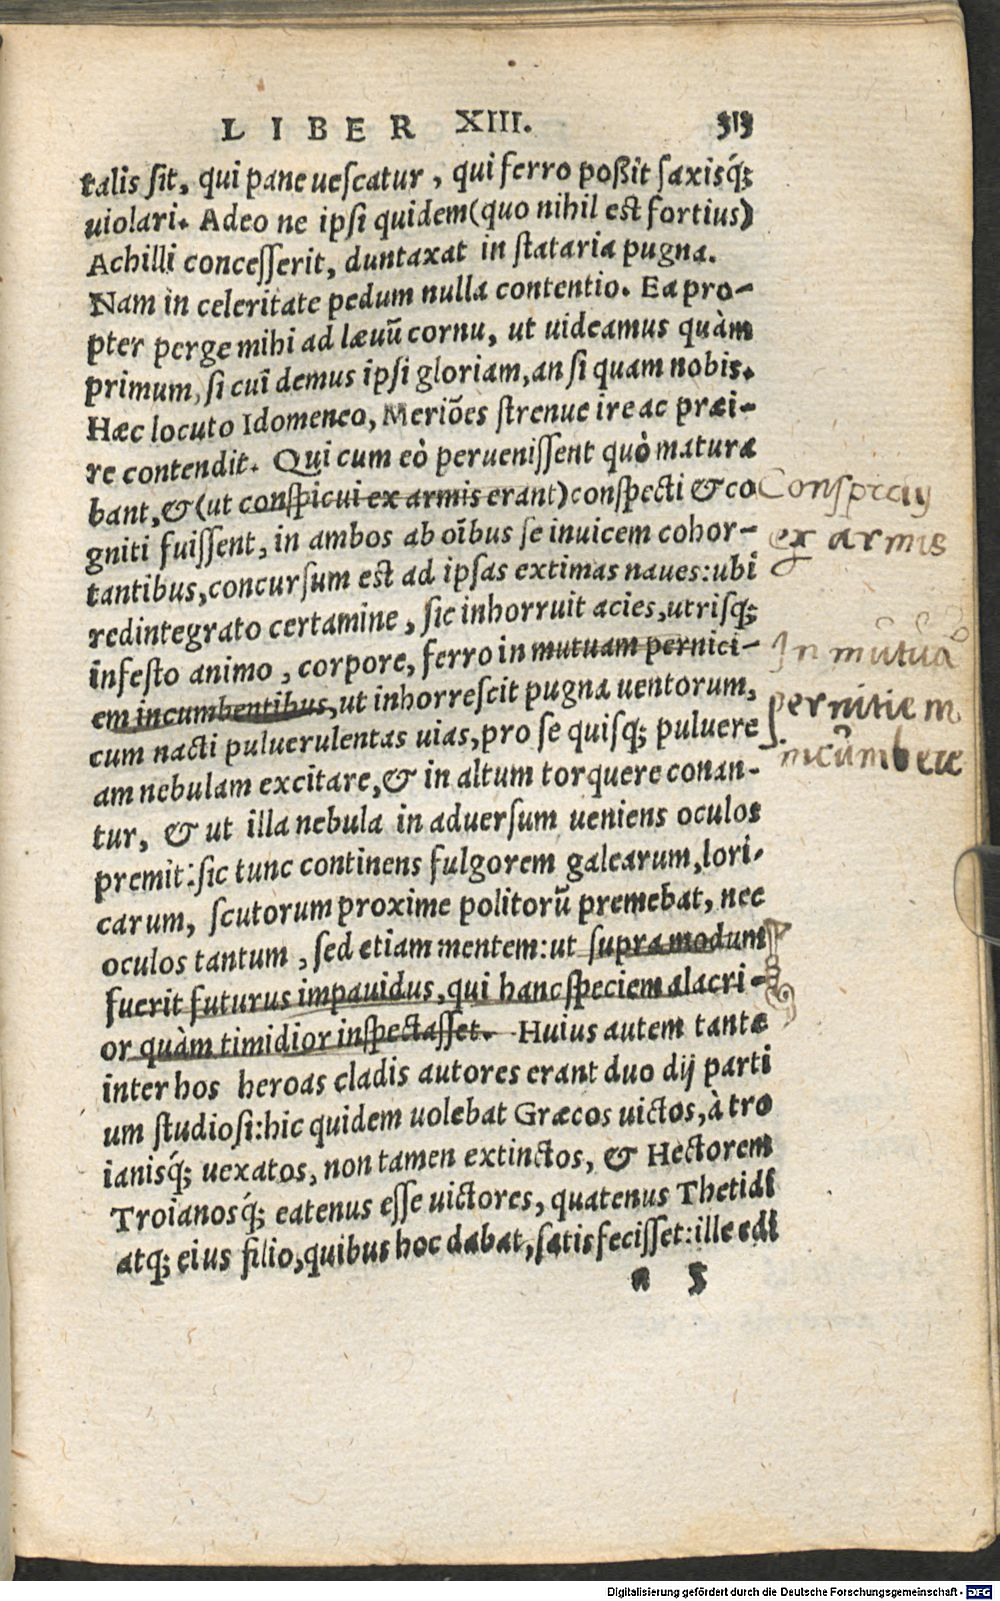 LIBER XIII. 313
talis sit, qui pane uescatur, qui ferro poßit saxisq́;
uiolari. Adeo ne ipsi quidem (quo nihil est fortius)
Achilli concesserit, duntaxat in stataria pugna.
Nam in celeritate pedum nulla contentio. Ea pro-
pter perge mihi ad læuū cornu, ut uideamus quàm
primum, si cui demus ipsi gloriam, an si quam nobis.
Hæc locuto Idomeneo, Meriōes strenue ire ac præi-
re contendit. Qui cum eò peruenissent quò matura
bant, & (ut conspicui ex armis erant) conspecti & co
Conspicuj
gniti fuissent, in ambos ab oībus se inuicem cohor-
ex armis
tantibus, concursum est ad ipsas extimas naues: ubi
redintegrato certamine, sic inhorruit acies, utrisq;
infesto animo, corpore, ferro in mutuam pernici-
In mutuā
em incumbentibus, ut inhorrescit pugna uentorum,
pernitiem
cum nacti puluerulentas uias, pro se quisq; puluere
incūmbere
am nebulam excitare, & in altum torquere conan-
tur, & ut illa nebula in aduersum ueniens oculos
premit: sic tunc continens fulgorem galearum, lori-
carum, scutorum proxime politorū premebat, nec
oculos tantum, sed etiam mentem: ut supra modum
fuerit futurus impauidus, qui hanc speciem alacri-
or quàm timidior inspectasset. Huius autem tantæ
inter hos heroas cladis autores erant duo dij parti
um studiosi: hic quidem uolebat Græcos uictos, à tro
ianisq́; uexatos, non tamen extinctos, & Hectorem
Troianosq́; eatenus esse uictores, quatenus Thetidi
atq; eius filio, quibus hoc dabat, satisfecisset: ille edi
n 5
Digitalisierung gefördert durch die Deutsche Forschungsgemeinschaft - DFG